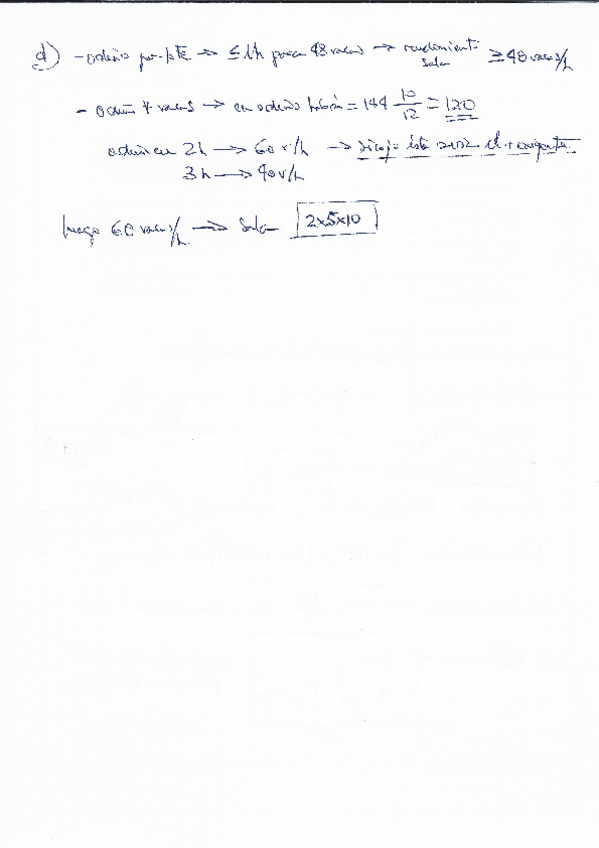 d) - ordeño por lote → ≤ 1h para 48 vacas → rendimiento sala ≥ 48 vacas/h
- ordeño vacas → en ordeño habrá = 144 10/12 = 120
ordeño en 2h → 60 v/h → 
3h → 40 v/h
luego 60 vacas/h → Sala 2x5x10